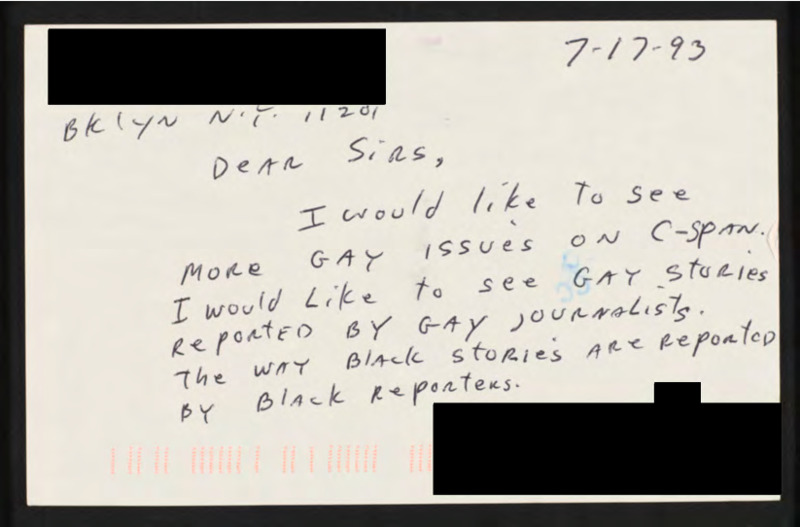 7-17-93
Bklyn N.Y. 11201
Dear Sirs,
I would like to see
more gay issues on C-SPAN.
I would like to see gay stories
reported by gay journalists.
The way Black stories are reported
by Black reporters.